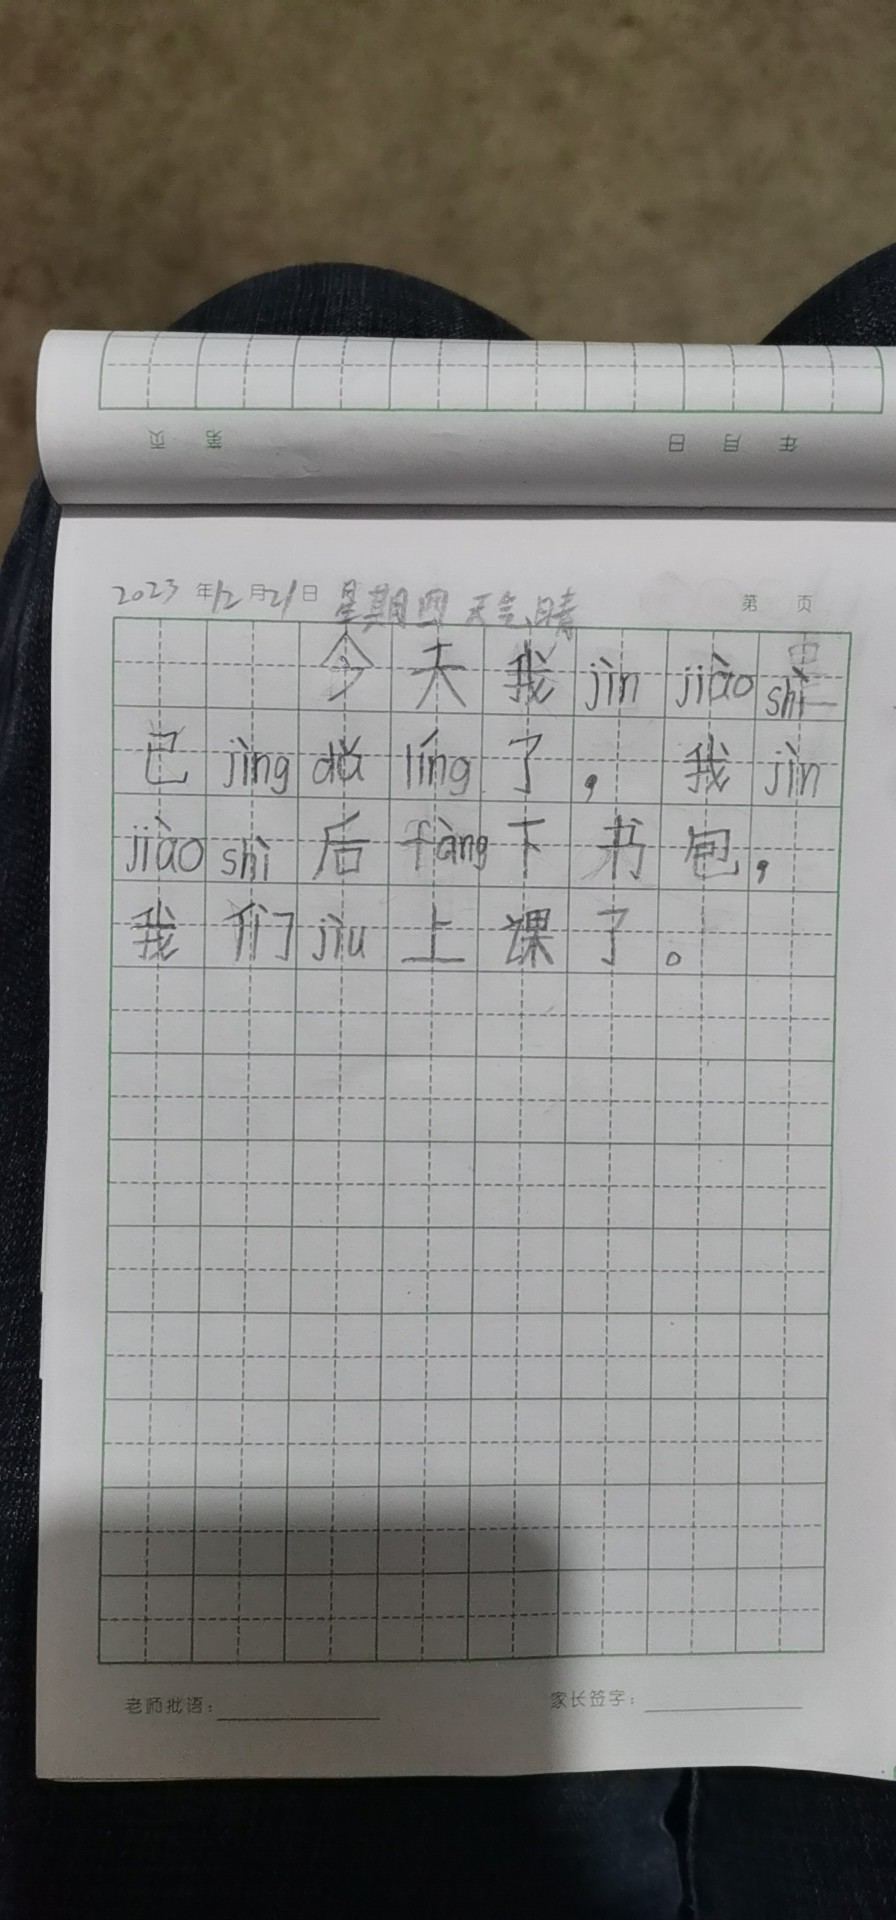 页 第 日 月 年
2023年12月21日 星期四 天气晴 第 页
今天我jìn jiào shì
已jīng dǎ líng了,我jìn
jiào shì后fàng下书包,
我们jiù上课了。
老师批语: 家长签字: